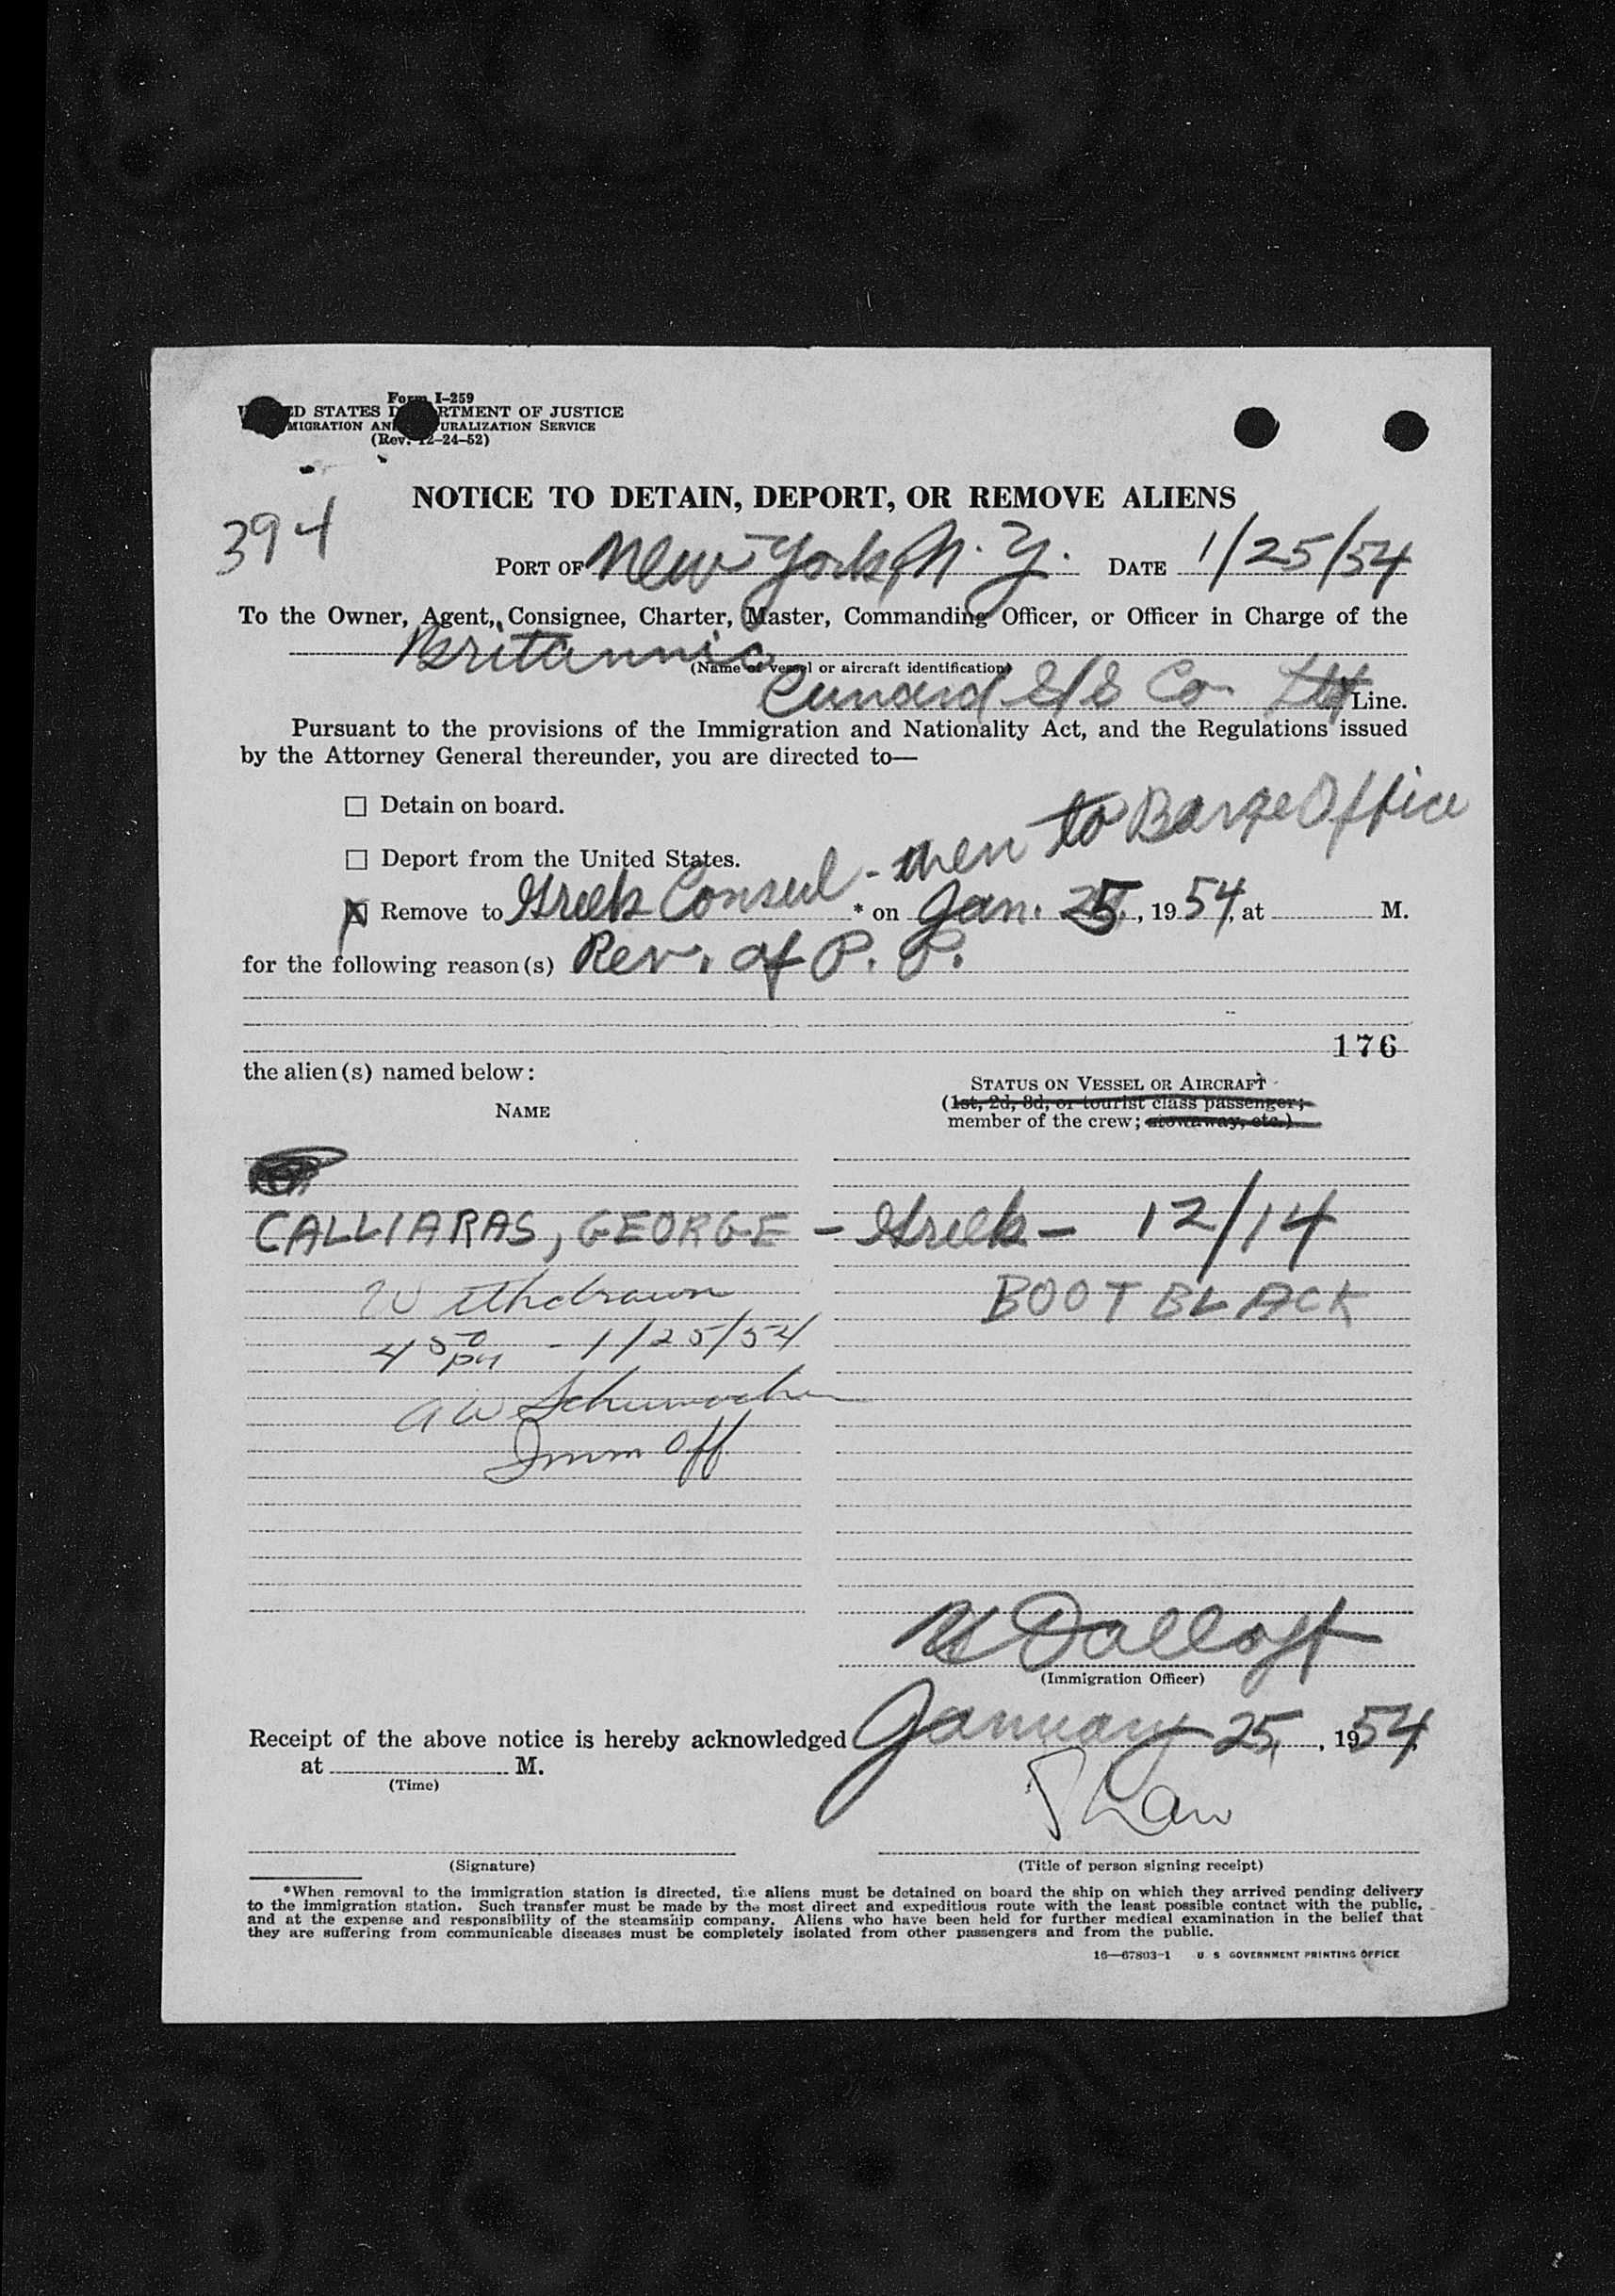 Form I-259
D STATES D RTMENT OF JUSTICE
MIGRATION AN URALIZATION SERVICE
(Rev. 12-24-52)
NOTICE TO DETAIN, DEPORT, OR REMOVE ALIENS
394
PORT OF New York, N. Y. DATE 1/25/54
To the Owner, Agent, Consignee, Charter, Master, Commanding Officer, or Officer in Charge of the
Britannic
(Name of vessel or aircraft identification)
Cunard S/S Co Ltd Line.
Pursuant to the provisions of the Immigration and Nationality Act, and the Regulations issued
by the Attorney General thereunder, you are directed to—
☐ Detain on board.
☐ Deport from the United States.
- then to Barge Office
☒ Remove to Greek Consul * on Jan. 25, 1954, at M.
for the following reason(s) Rev. of P. P.
176
the alien(s) named below:
NAME
STATUS ON VESSEL OR AIRCRAFT
(1st, 2d, 3d, or tourist class passenger;
member of the crew; stowaway, etc.)
CALLIARAS, GEORGE - Greek - 12/14
Withdrawn
BOOT BLACK
4 50 pm - 1/25/54
A W Schumacher
Imm Off
(Immigration Officer)
Receipt of the above notice is hereby acknowledged January 25, 1954,
at M.
(Time)
(Signature)
(Title of person signing receipt)
*When removal to the immigration station is directed, the aliens must be detained on board the ship on which they arrived pending delivery
to the immigration station. Such transfer must be made by the most direct and expeditious route with the least possible contact with the public,
and at the expense and responsibility of the steamship company. Aliens who have been held for further medical examination in the belief that
they are suffering from communicable diseases must be completely isolated from other passengers and from the public.
16—67803-1 U S GOVERNMENT PRINTING OFFICE